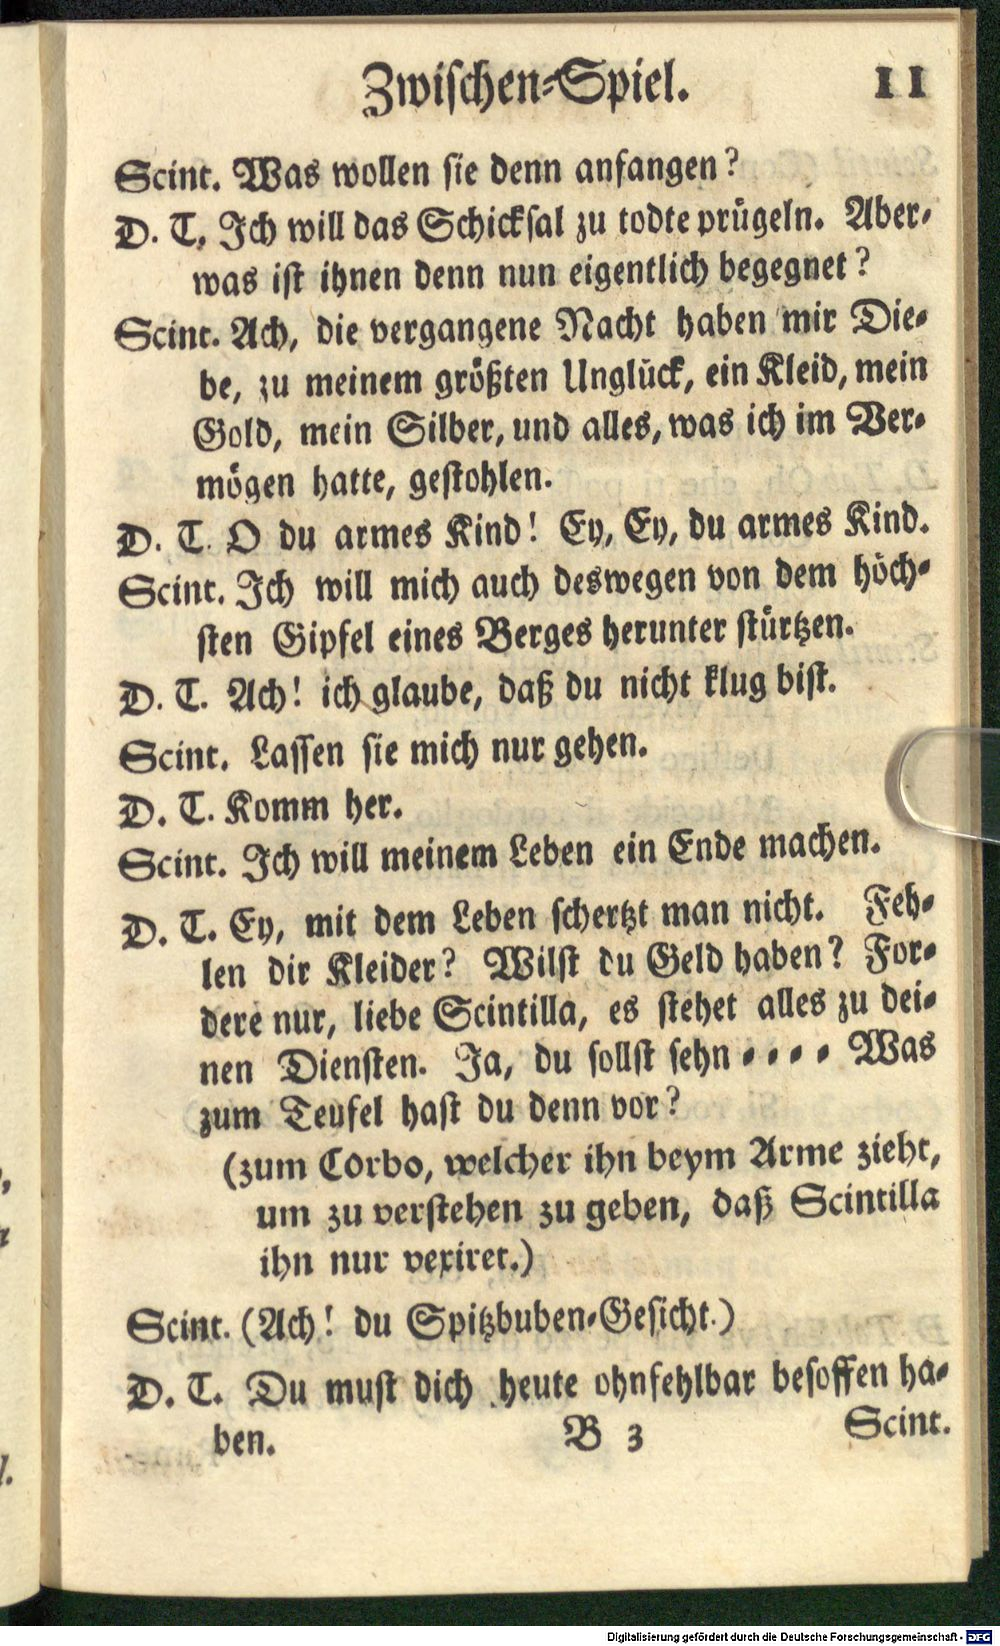 Zwischen-Spiel. 11
Scint. Was wollen sie denn anfangen?
D. T. Ich will das Schicksal zu todte prügeln. Aber-
was ist ihnen denn nun eigentlich begegnet?
Scint. Ach, die vergangene Nacht haben mir Die-
be, zu meinem größten Unglück, ein Kleid, mein
Gold, mein Silber, und alles, was ich im Ver-
mögen hatte, gestohlen.
D. T. O du armes Kind! Ey, Ey, du armes Kind.
Scint. Ich will mich auch deswegen von dem höch-
sten Gipfel eines Berges herunter stürtzen.
D. T. Ach! ich glaube, daß du nicht klug bist.
Scint. Lassen sie mich nur gehen.
D. T. Komm her.
Scint. Ich will meinem Leben ein Ende machen.
D. T. Ey, mit dem Leben schertzt man nicht. Feh-
len dir Kleider? Wilst du Geld haben? For-
dere nur, liebe Scintilla, es stehet alles zu dei-
nen Diensten. Ja, du sollst sehn - - - - Was
zum Teufel hast du denn vor?
(zum Corbo, welcher ihn beym Arme zieht,
um zu verstehen zu geben, daß Scintilla
ihn nur vexiret.)
Scint. (Ach! du Spitzbuben-Gesicht.)
D. T. Du must dich heute ohnfehlbar besoffen ha-
ben. B 3 Scint.
Digitalisierung gefördert durch die Deutsche Forschungsgemeinschaft - DFG